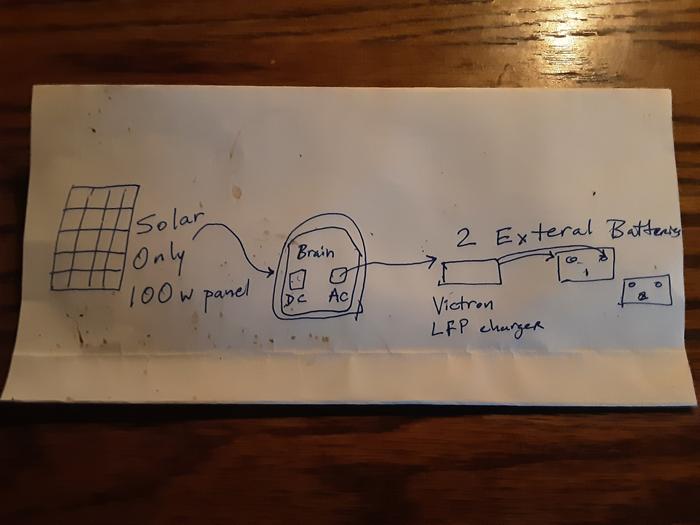 Solar
Only
100w panel
Brain
DC
AC
Victron
LFP charger
2 Exteral Batteries
1
2